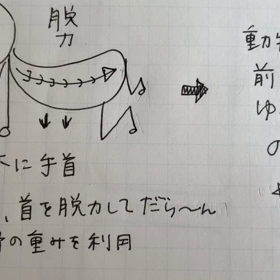 脱力
に手首
、首を脱力してだら〜ん
の重みを利用
動
前
ゆ
の